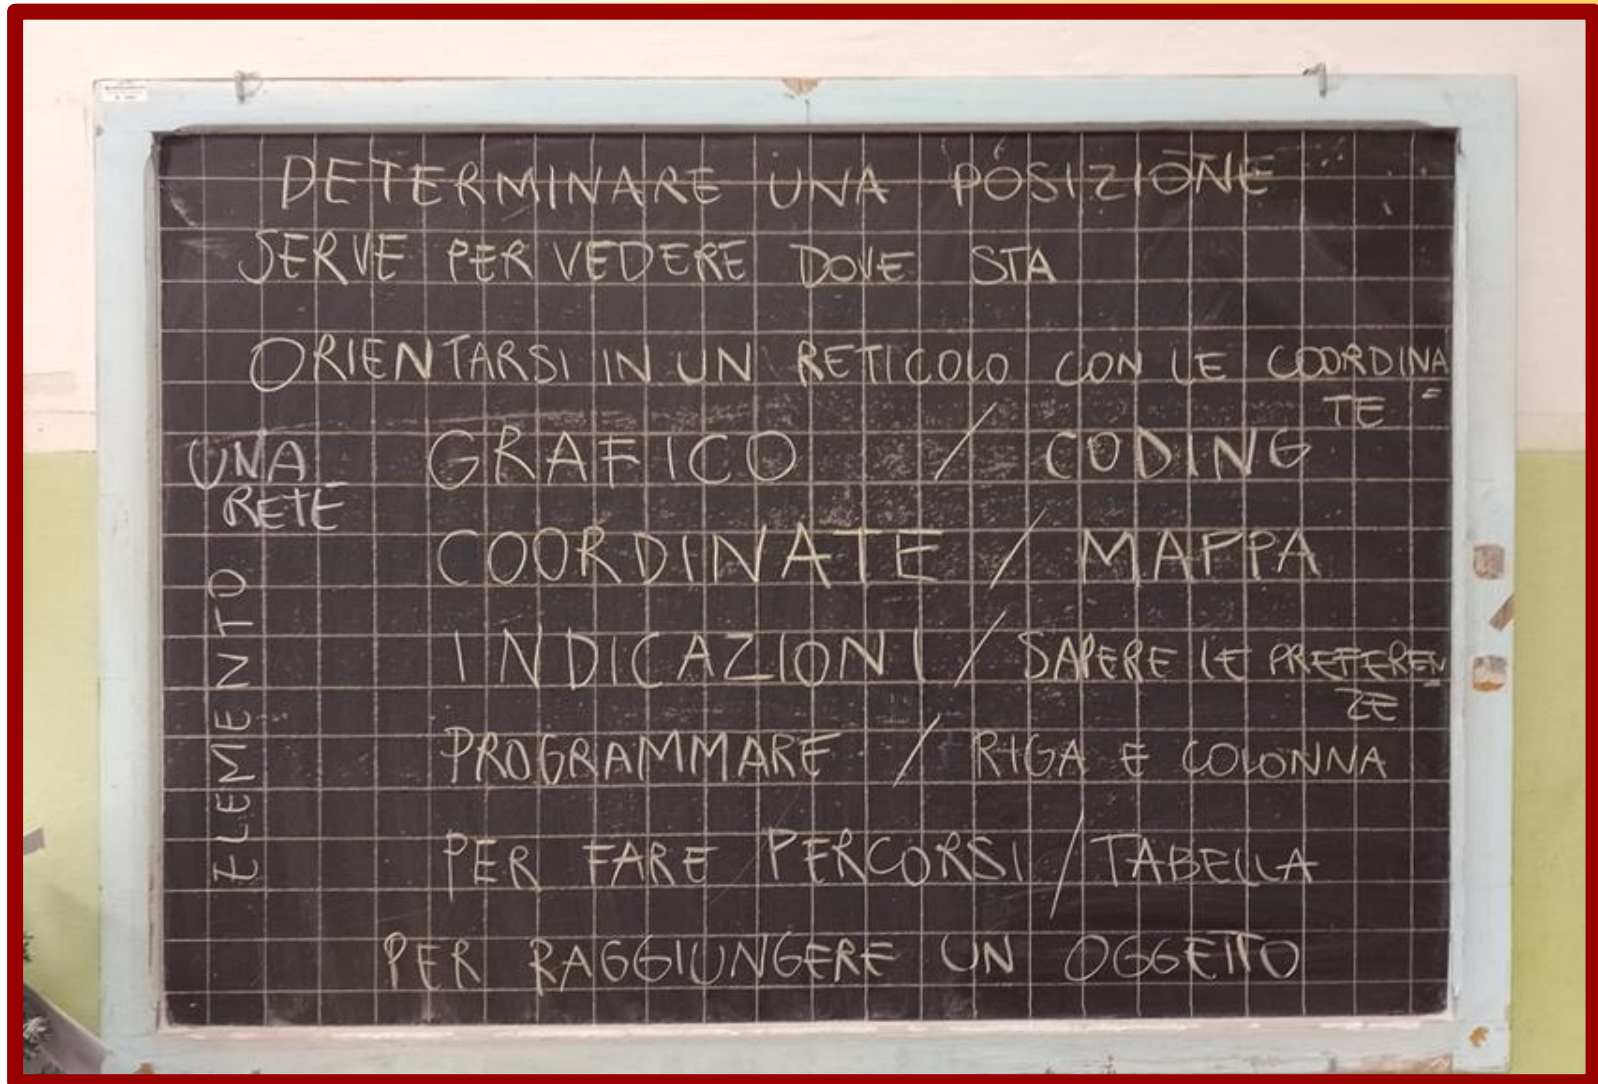 DETERMINARE UNA POSIZIONE
SERVE PER VEDERE DOVE STA
ORIENTARSI IN UN RETICOLO CON LE COORDINA
TE
UNA
RETE
GRAFICO / CODING
COORDINATE / MAPPA
INDICAZIONI / SAPERE LE PREFEREN
ZE
PROGRAMMARE / RIGA E COLONNA
PER FARE PERCORSI / TABELLA
PER RAGGIUNGERE UN OGGETTO
ELEMENTO